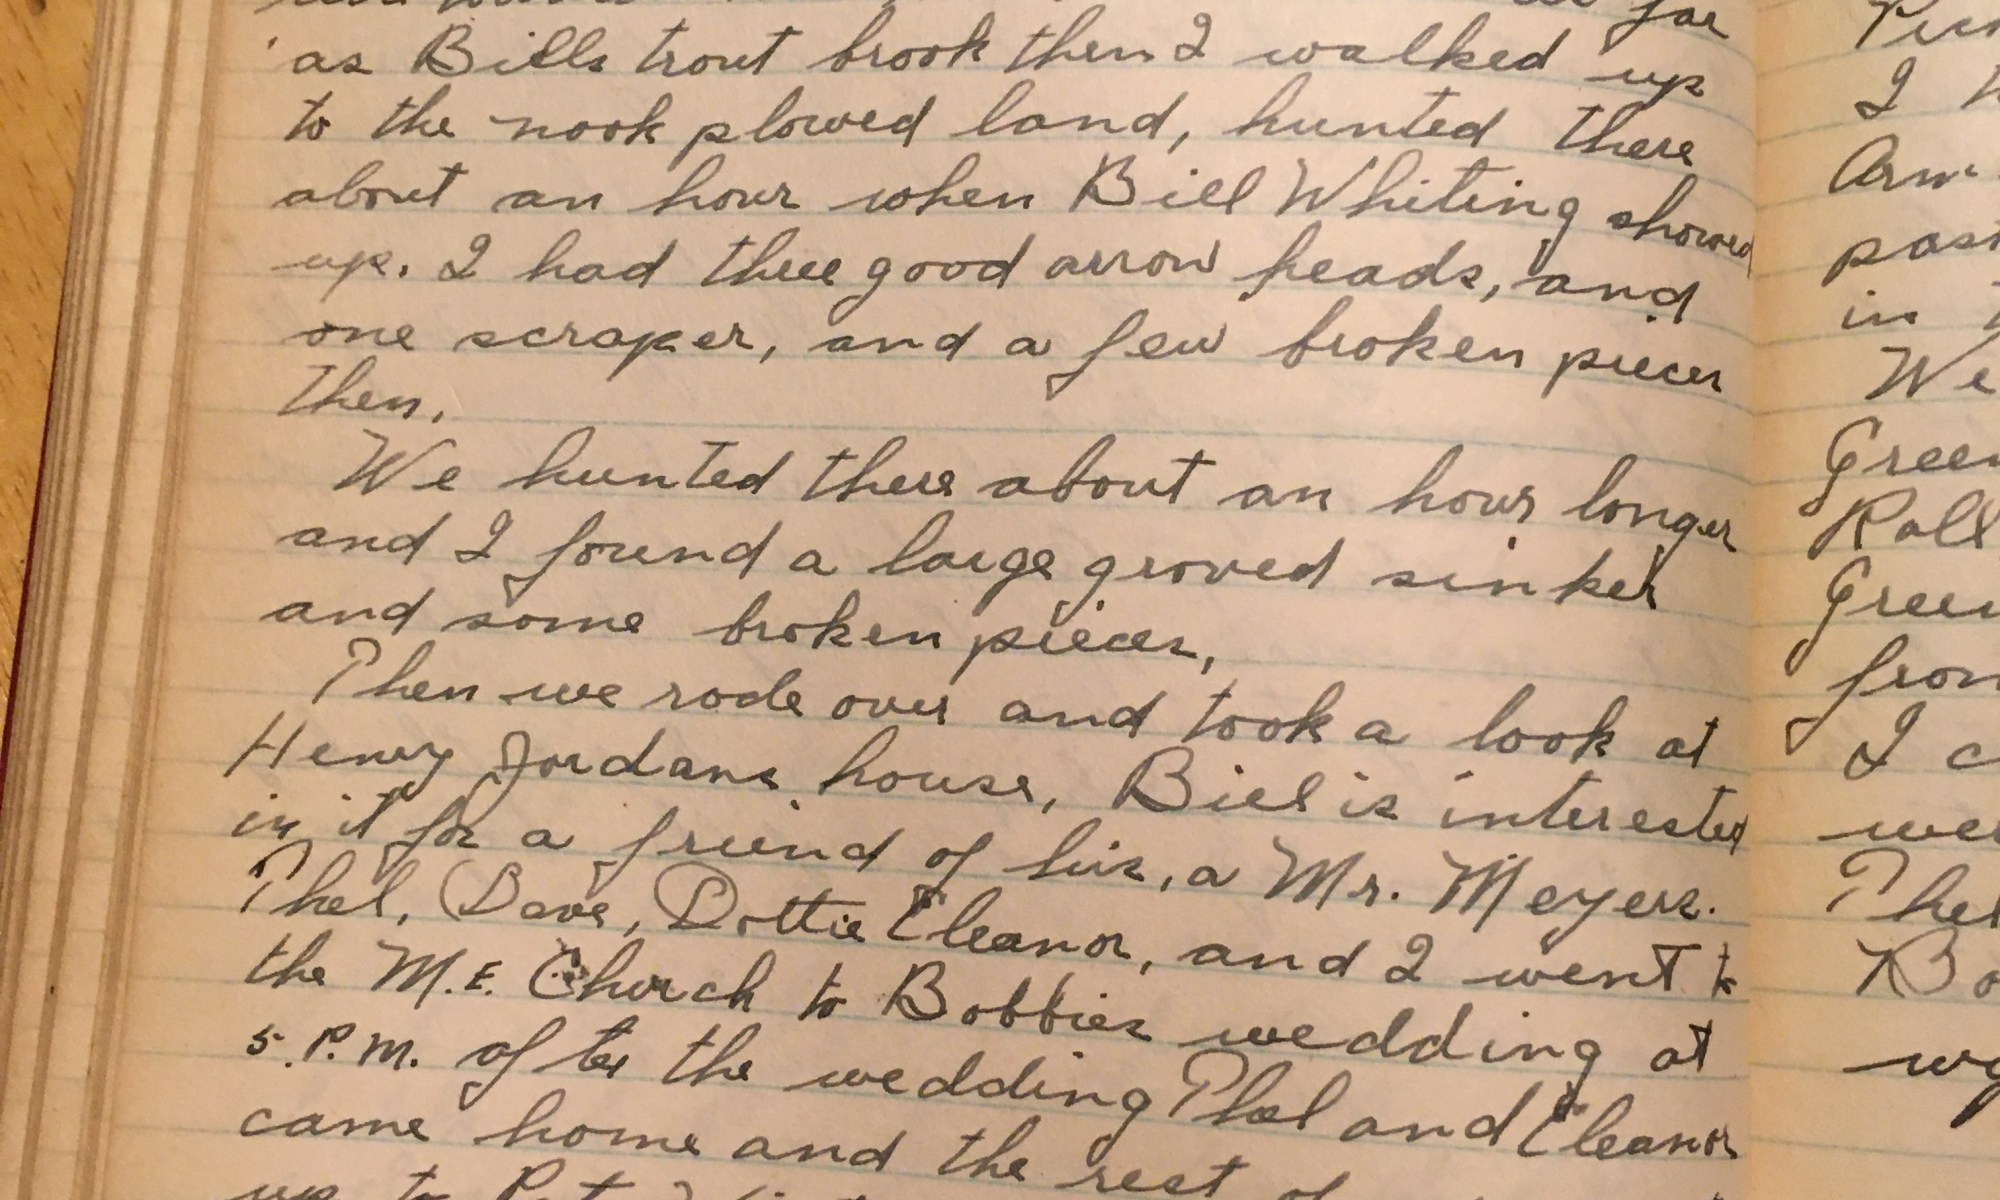 far
as Bills trout brook then I walked up
to the nook plowed land, hunted there
about an hour when Bill Whiting showed
up. I had three good arrow heads, and
one scraper, and a few broken pieces
then.
We hunted there about an hour longer
and I found a large groved sinker
and some broken pieces,
Then we rode over and took a look at
Henry Jordans house, Bill is interested
in it for a friend of his, a Mr. Meyers.
Phel, Dave, Dottie Eleanor, and I went to
the M.E. Church to Bobbies wedding at
5 P.M. after the wedding Phel and Eleanor
came home and the rest of
up to
I
past
in
We
Green
Green
from
I
Phel